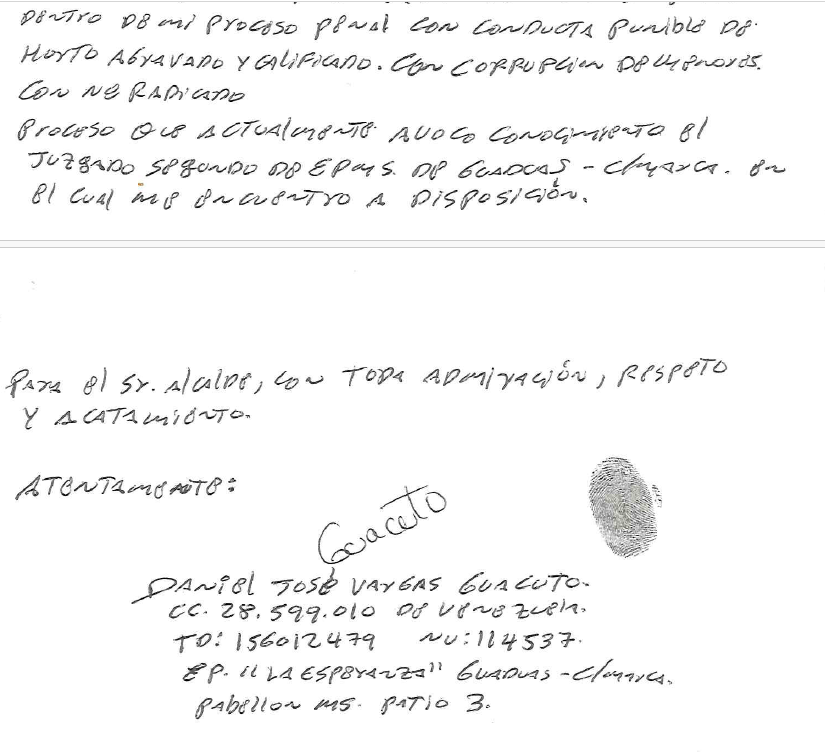 DENTRO DE mi PROCESO PENAL CON CONDUCTA PUNIBLE DE.
HURTO AGRAVADO Y CALIFICADO. CON CORRUPCION DE MENORES.
CON Nº RADICADO
PROCESO QUE ACTUALMENTE AVOCO CONOCIMIENTO El
JUZGADO SEGUNDO DE EPMS. DE GUADUAS - C/MARCA. EN
El CUAL ME ENCUENTRO A DISPOSICIÓN.
PARA El Sr. AlCAlDE, CON TODA ADMIRACIÓN, RESPETO
Y ACATAMIENTO.
ATENTAMENTE:
Guacuto
DANIEL JOSÉ VARGAS GUACUTO.
CC. 28.599.010 DE VENEZUELA.
TD: 156012479 NU: 114537.
EP. "LA ESPERANZA" GUADUAS - C/MARCA.
PABELLON MS. PATIO 3.